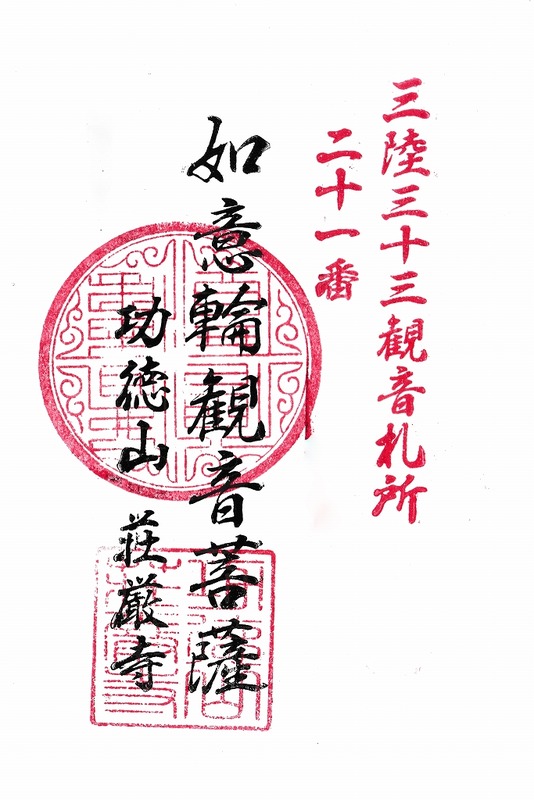 三陸三十三観音札所
二十一番
如意輪観音菩薩
功徳山 荘厳寺